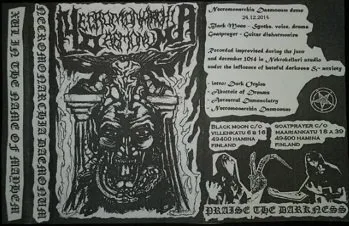 XLII THE NAME OF MAYHEM
NECROMONARCHIA DAEMONUM
NECROMONARCHIA
DAEMONUM
Necromonarchia Daemonum demo
24.12.2014
Black Moon - Synths, voice, drums
Goatprayer - Guitar disharmonies
Recorded improvised during the june
and december 2014 in Nekrokellari studio
under the influence of hateful darkness & anxiety
- intro: Dark Orgies
- Abortoir of Dreams
- Necromonarchia Daemonum
BLACK MOON C/O
VILLENKATU 6 B 16
49400 HAMINA
FINLAND
GOATPRAYER C/O
MAARIANKATU 18 A 39
49400 HAMINA
FINLAND
PRAISE THE DARKNESS